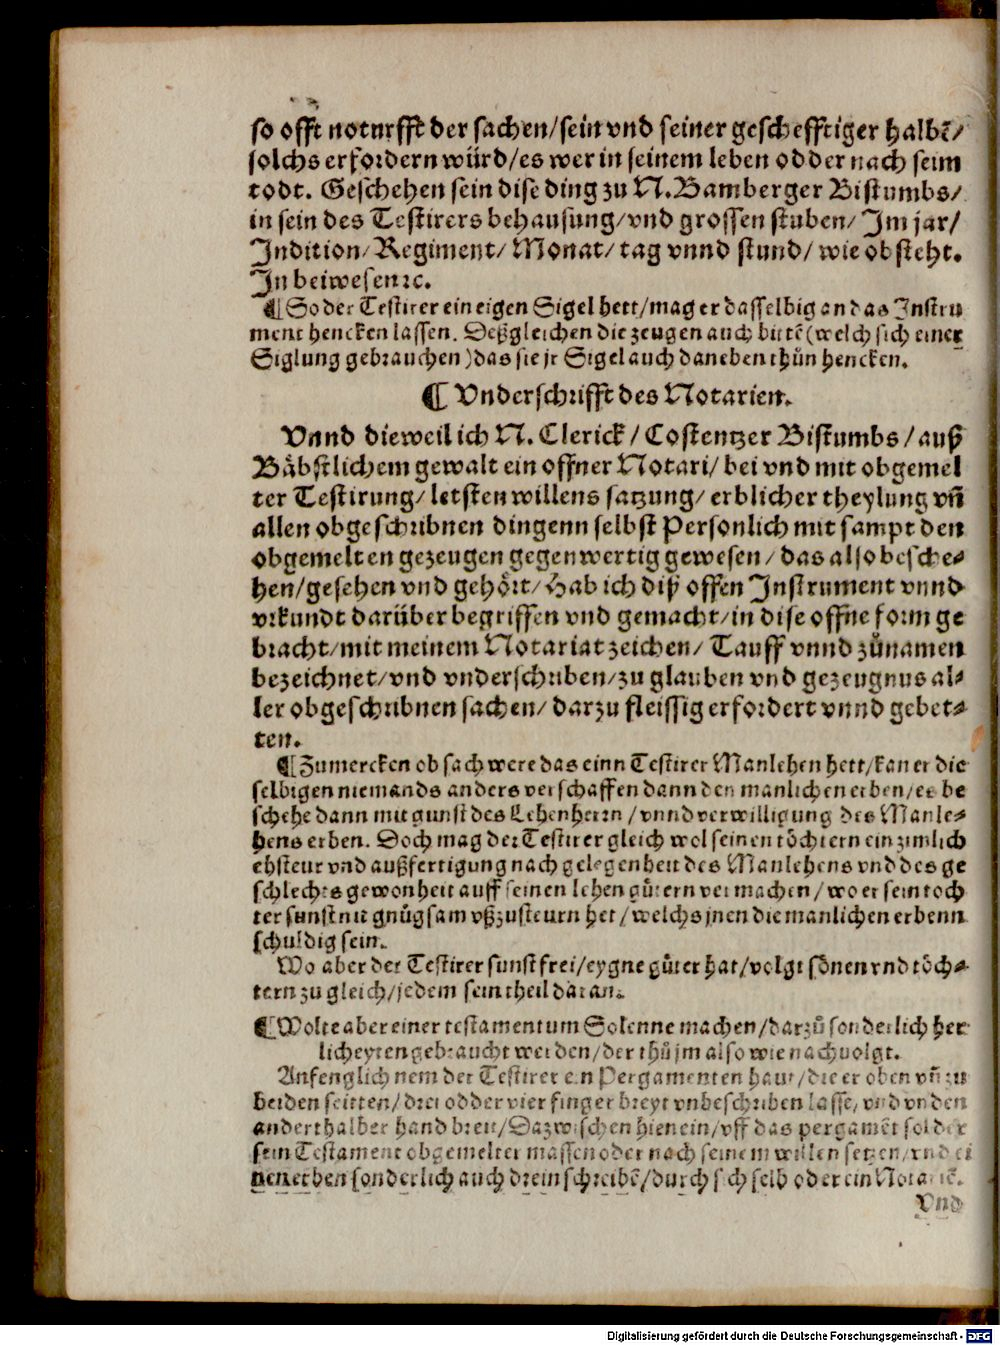 so offt noturfft der sachen/sein vnd seiner geschefftiger halbē/
solchs erfordern würd/es wer in seinem leben odder nach seim
todt. Geschehen sein dise ding zu N. Bamberger Bistumbs/
in sein des Testirers behausung/vnd grossen stuben/ Im jar/
Indition/ Regiment/ Monat/ tag vnnd stund/ wie obsteht.
In beiwesen ꝛc.
¶ So der Testirer ein eigen Sigel hett/mag er dasselbig an das Instru
ment hencken lassen. Deßgleichen die zeugen auch bittē (welch sich einer
Siglung gebrauchen) das sie jr Sigel auch daneben thün hencken.
¶ Vnderschrifft des Notarien.
Vnnd dieweil ich N. Clerick/ Costentzer Bistumbs/ auß
Bäbstlichem gewalt ein offner Notari/ bei vnd mit obgemel
ter Testirung/ letsten willens satzung/ erblicher theylung vñ
allen obgeschribnen dingenn selbst Personlich mit sampt den
obgemelten gezeugen gegenwertig gewesen/ das also besche⸗
hen/gesehen vnd gehört/ Hab ich diß offen Instrument vnnd
vrkundt darüber begriffen vnd gemacht/in dise offne form ge
bracht/mit meinem Notariat zeichen/ Tauff vnnd zůnamen
bezeichnet/vnd vnderschriben/zu glauben vnd gezeugnus al⸗
ler obgeschribnen sachen/ darzu fleissig erfordert vnnd gebet⸗
ten.
¶ Zumercken ob sach were das einn Testirer Manlehen hett/kan er die
selbigen niemands anders verschaffen dann den manlichen erben/es be
schehe dann mit gunst des Lehenherrn/vnnd verwilligung des Manle⸗
hens erben. Doch mag der Testirer gleich wol seinen töchtern ein zimlich
ehsteur vnd außfertigung nach gelegenheit des Manlehens vnd des ge
schlechts gewonheit auff seinen lehen gütern vermachen/wo er sein toch
ter sunst nit gnůgsam vßzusteurn het/welchs jnen die manlichen erbenn
schuldig sein.
Wo aber der Testirer sunst frei/eygne güter hat/volgt sönen vnd töch⸗
tern zu gleich/jedem sein theil daran.
¶ Wolte aber einer testamentum Solenne machen/darzů sonderlich her
licheyten gebraucht werden/der thů jm also wie nachuolgt.
Anfenglich nem der Testirer ein Pergamenten haut/die er oben vñ zu
beiden seitten/drei odder vier finger breyt vnbeschriben lasse/vnd vnden
anderthalber hand breit/Dazwischen hienein/vff das pergamēt sol der
sein Testament obgemelter massen oder nach seinem willen setzen/vnd ei
nen erben sonderlich auch drein schreibē/durch sich selb oder ein Notariē.
Vnd
Digitalisierung gefördert durch die Deutsche Forschungsgemeinschaft - DFG